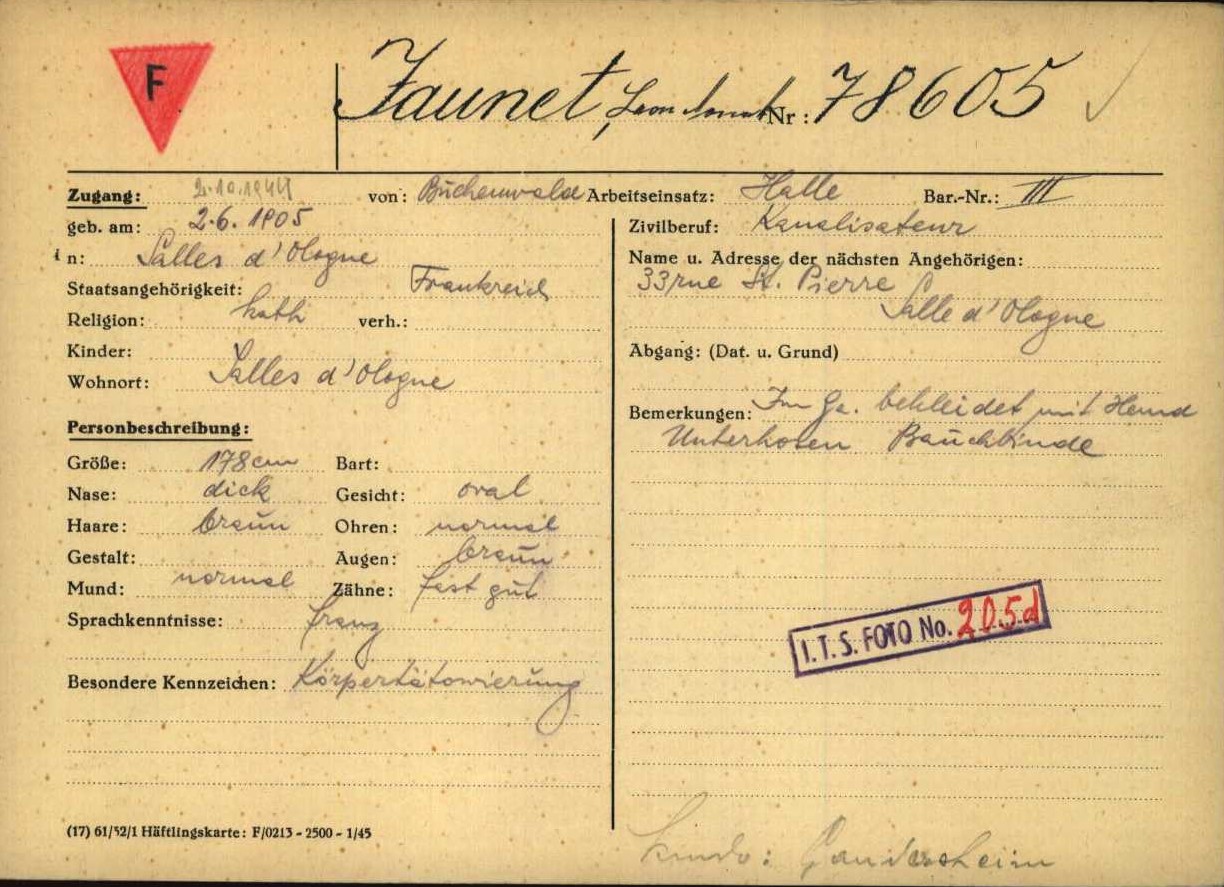 F
Jaunet, Nr: 78605
Zugang: 2.10.1944 von: Buchenwald Arbeitseinsatz: Halle Bar.-Nr.: III
geb. am: 2.6.1905 Zivilberuf: Kanalisateur
in: Salles d'Ologne Name u. Adresse der nächsten Angehörigen:
33 rue St. Pierre
Staatsangehörigkeit: Frankreich
Salle d'Ologne
Religion: kath verh.:
Kinder: Abgang: (Dat. u. Grund)
Wohnort: Salles d'Ologne
Bemerkungen: Im bekleidet mit Hemd
Unterhosen Bauchbinde
Personbeschreibung:
Größe: 178 cm Bart:
Nase: dick Gesicht: oval
Haare: braun Ohren: normal
Gestalt: Augen: braun
Mund: normal Zähne: fast gut
Sprachkenntnisse: franz
I.T.S. FOTO No. 205d
Besondere Kennzeichen: Körpertätowierung
(17) 61/52/1 Häftlingskarte: F/0213 - 2500 - 1/45
Kmdo: Gandersheim